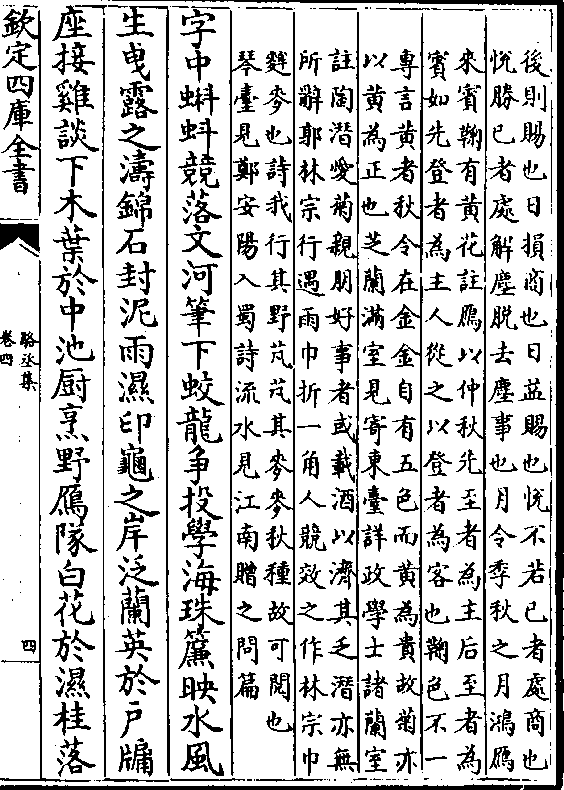 後則賜也日損商也日益賜也恱不若已者處商也
恱勝已者處解塵脱去塵事也月令季秋之月鴻鴈
來賓鞠有黄花註鴈以仲秋先至者為主后至者為
賓如先登者為主人從之以登者為客也鞠色不一
專言黄者秋令在金金自有五色而黄為貴故菊亦
以黄為正也芝蘭滿室見寄東臺詳政學士諸蘭室
註陶潛愛菊親朋好事者或載酒以濟其乏潛亦無
所辭郭林宗行遇雨巾折一角人競效之作林宗巾
麰麥也詩我行其野芃芃其麥麥秋種故可閱也
琴臺見鄭安陽入蜀詩流水見江南贈之問篇
字中蝌蚪競落文河筆下蛟龍争投學海珠簾映水風
生曳露之濤錦石封泥雨濕印龜之岸泛蘭英於户牖
座接雞談下木葉於中池厨烹野鴈隊白花於濕桂落
欽定四庫全書
駱丞集
卷四
四